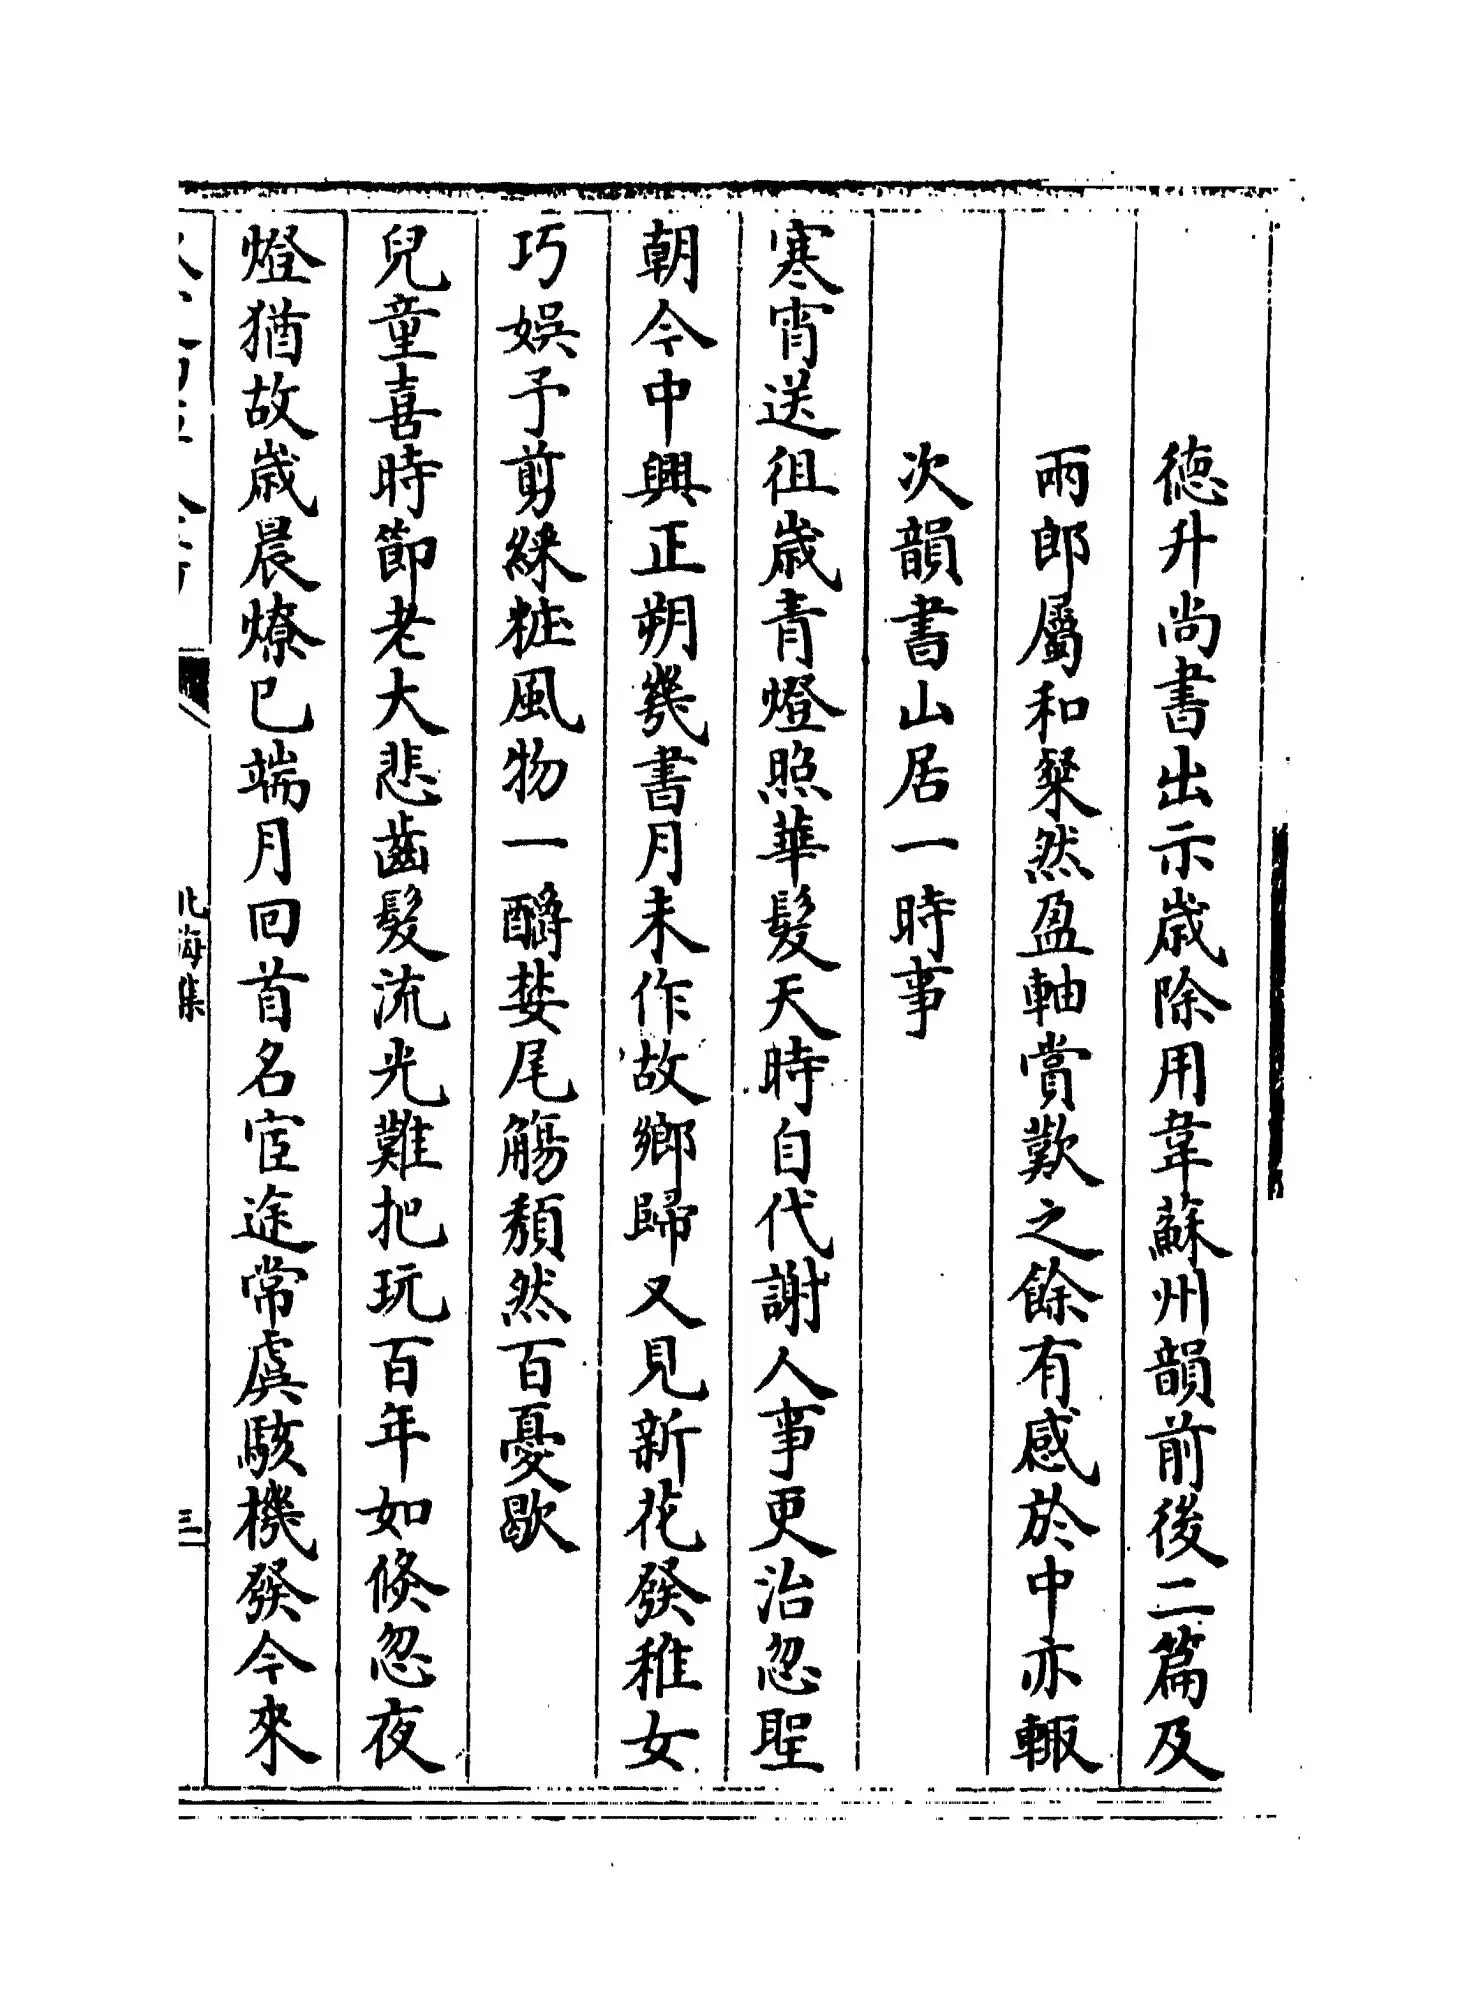 德升尚書出示歳除用韋蘇州韻前後二篇及
兩郎屬和粲然盈軸賞歎之餘有感於中亦輙
次韻書山居一時事
寒宵送徂歳青燈照華髮天時自代謝人事更治忽聖
朝今中興正朔幾書月未作故鄉歸又見新花發稚女
巧娛予剪綵粧風物一酹婪尾觴頽然百憂歇
兒童喜時節老大悲齒髮流光難把玩百年如倏忽夜
燈猶故歳晨燎已端月回首名宦途常虞駭機發今來
北海集
三